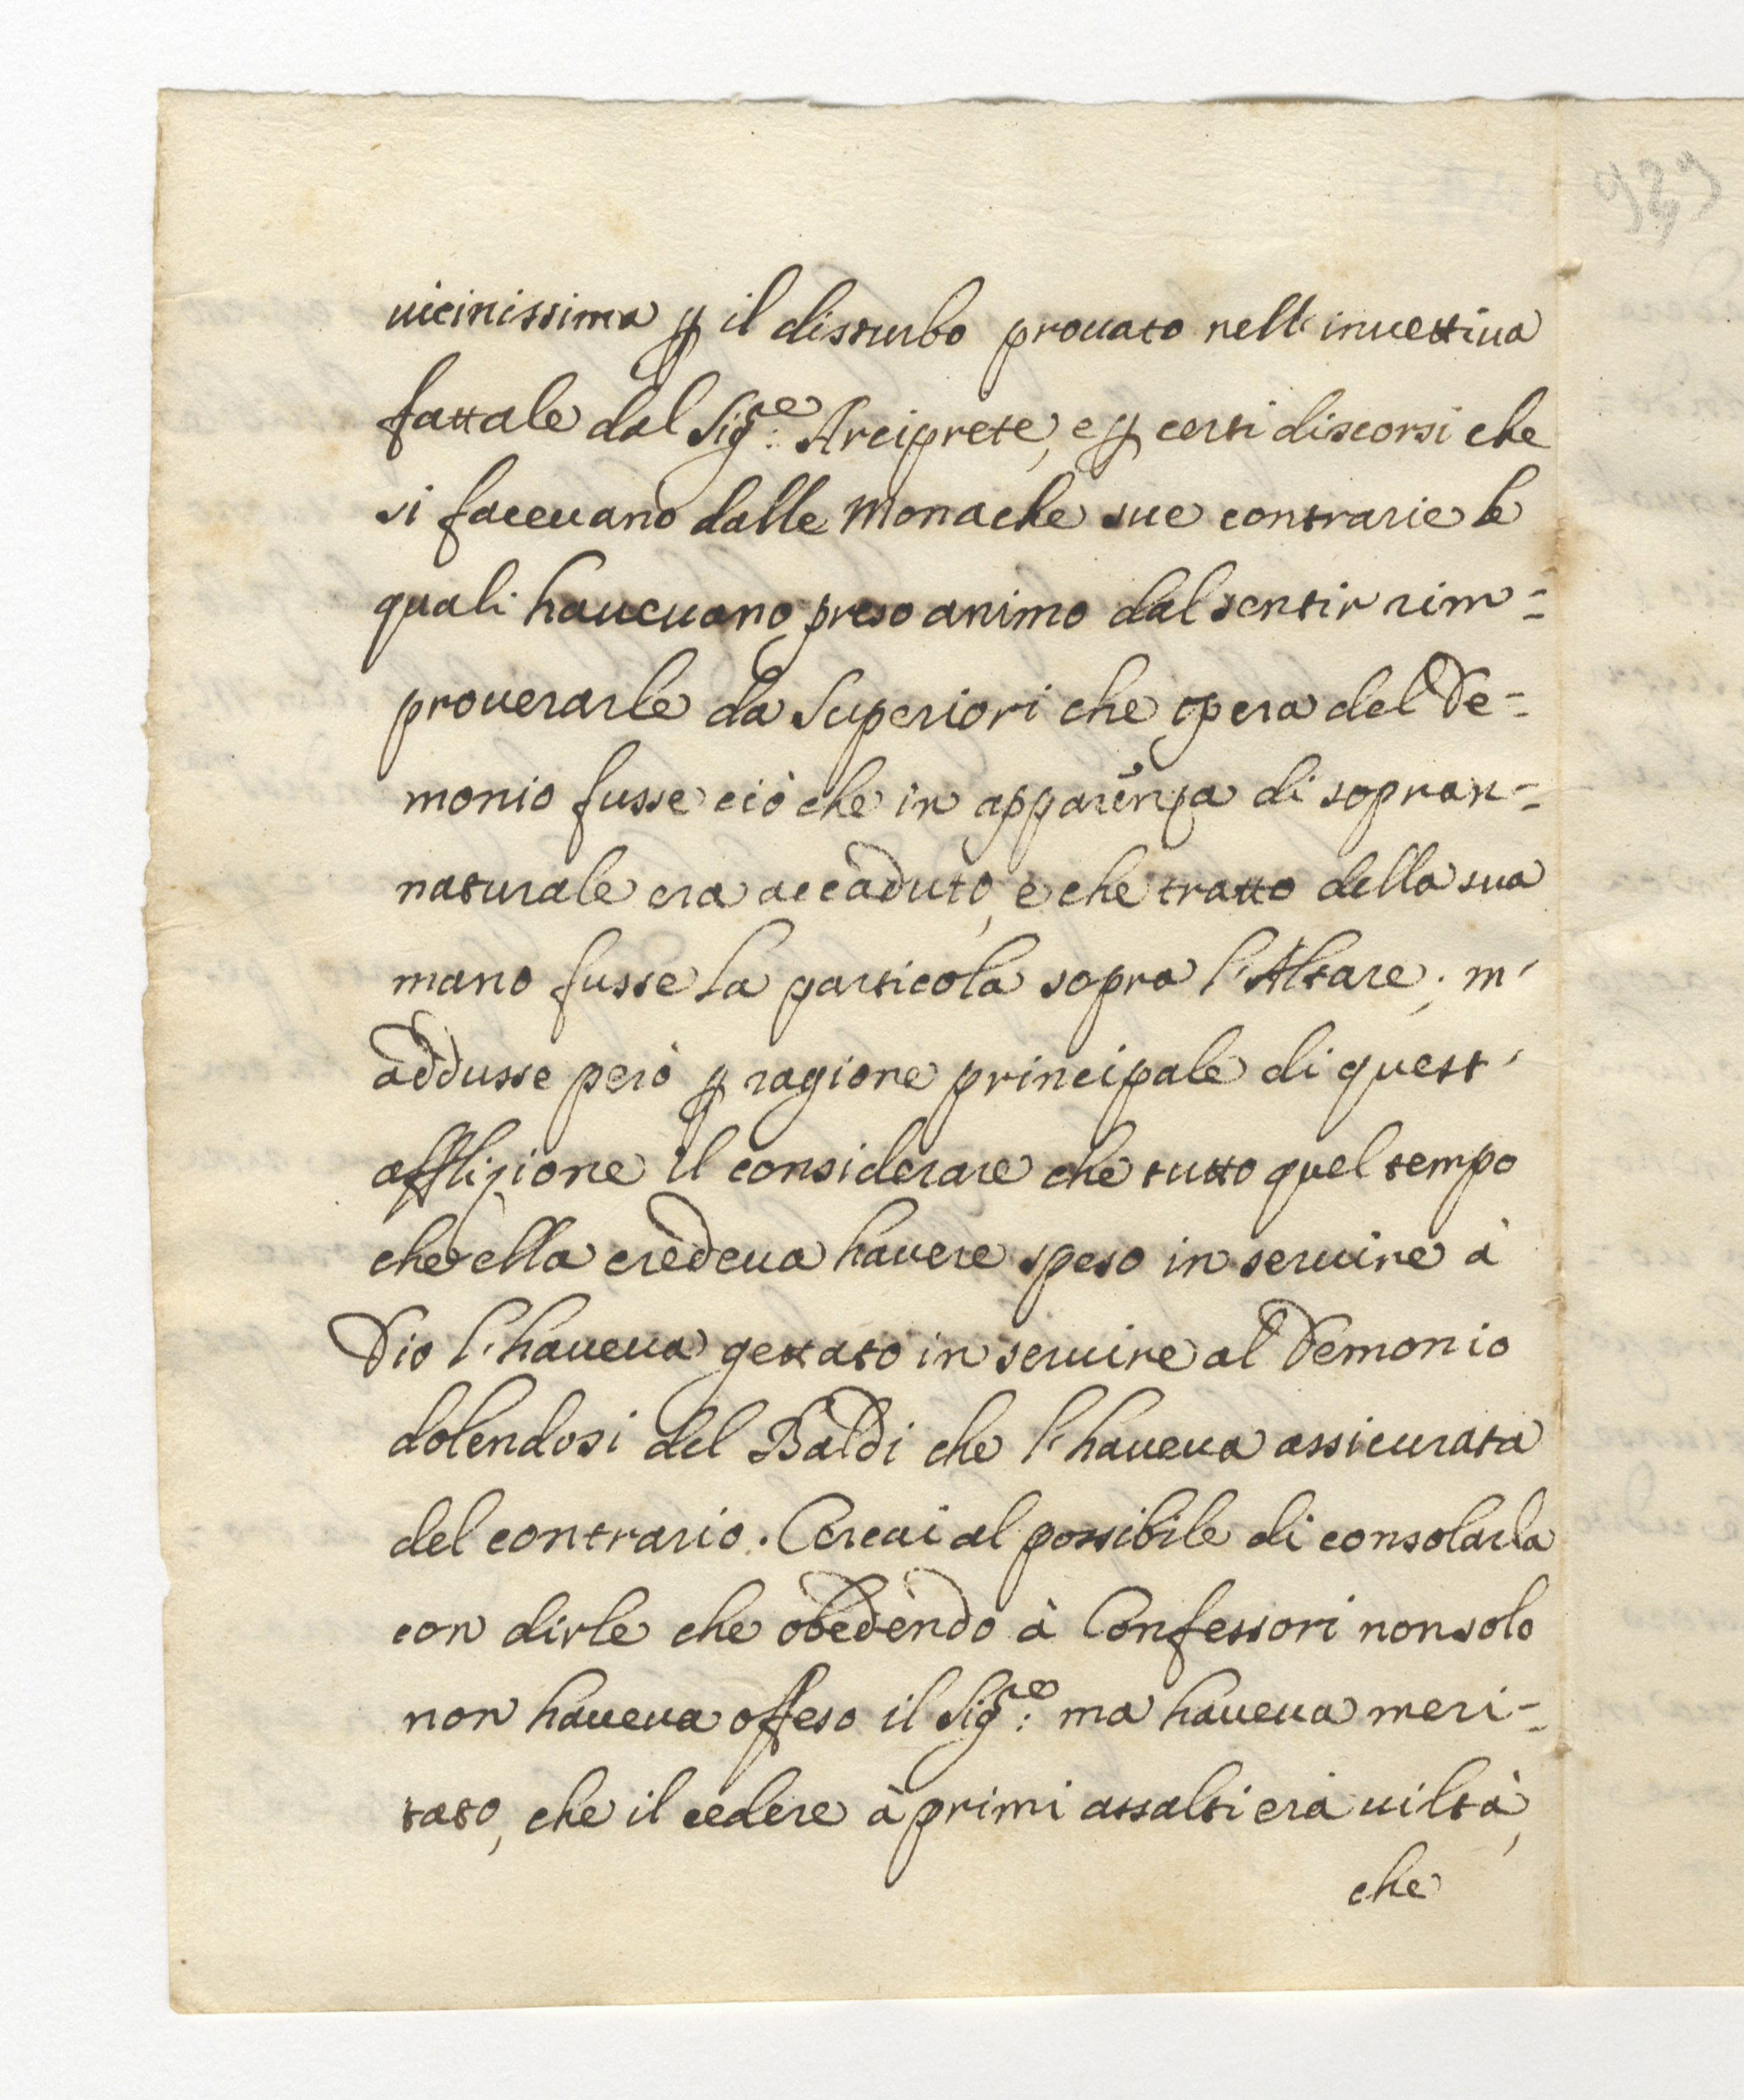 uicinissima ꝑ il disturbo prouato nell'inuettiua
fattale dal Sig.re Arciprete, e ꝑ certi discorsi che
si faceuano dalle Monache sue contrarie le
quali haueuano preso animo dal sentir rim=
prouerarle da Superiori che opera del De=
monio fusse ciò che in apparenza di sopran=
naturale era accaduto, e che tratto della sua
mano fusse la particola sopra l'Altare; m'
addusse però ꝑ ragione principale di quest'
afflizione il considerare che tutto quel tempo
che ella credeua hauere speso in seruire à
Dio l'haueua gettato in seruire al Demonio
dolendosi del Baldi che l'haueua assicurata
del contrario. Cercai al possibile di consolarla
con dirle che obedendo à Confessori non solo
non haueua offeso il Sig.re ma haueua meri=
tato, che il cedere à primi assalti era uiltà,
che